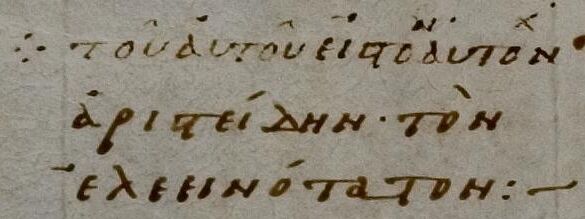 ⁘ τοῦ ἀυτοῦ εἰς τὸν ἀυτὸν
ἀριστείδην· τὸν
ἐλεεινότατον:~